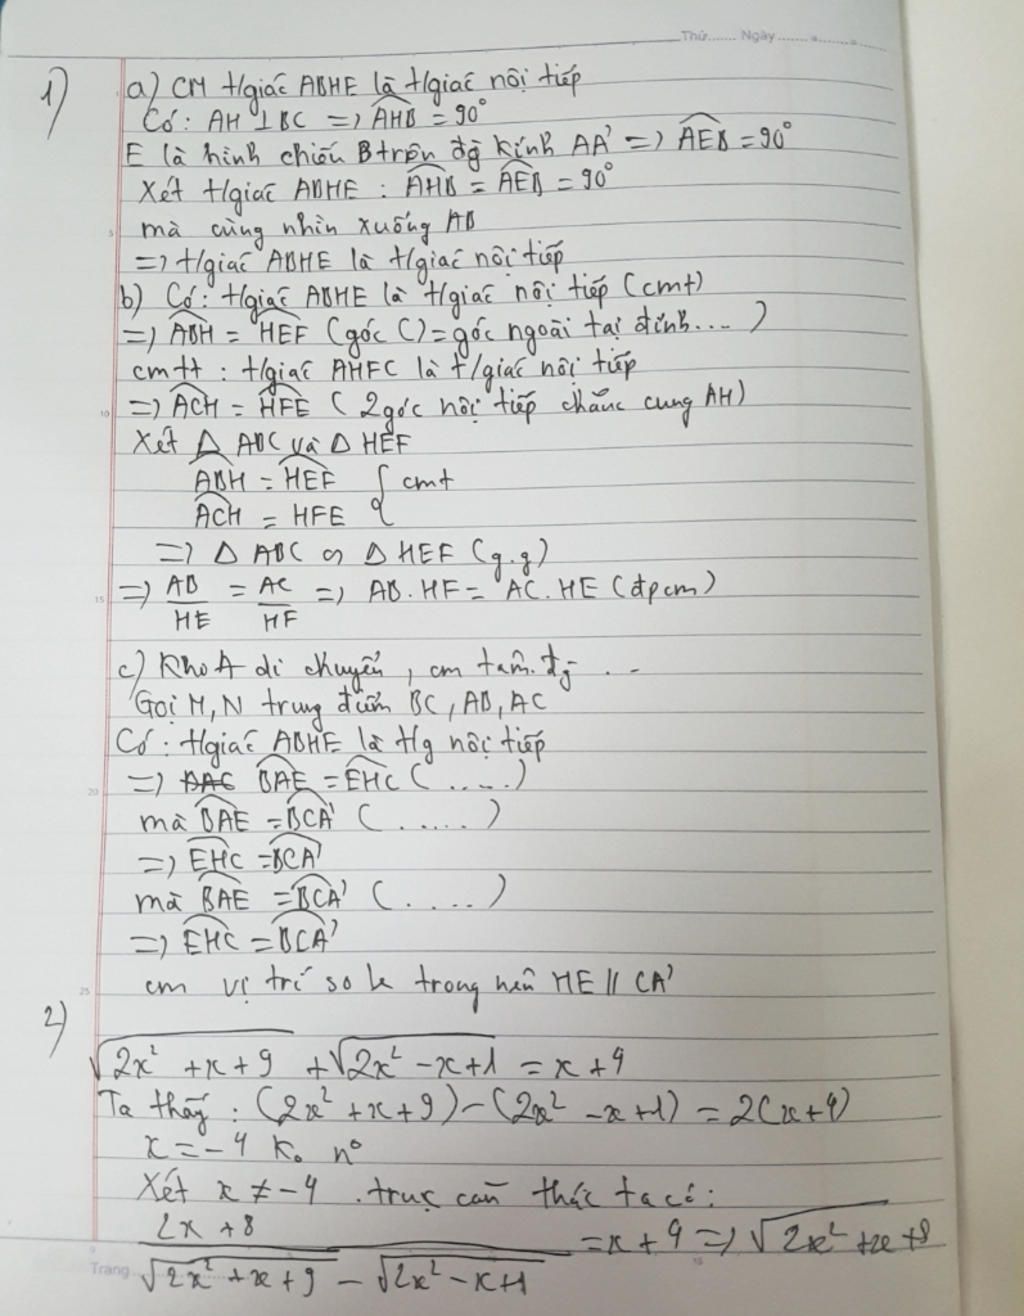 Thứ....... Ngày.......
1)
a) CM t/giác ABHE là t/giác nội tiếp
Có: AH ⊥ BC => AHB = 90°
E là hình chiếu B trên đg kính AA' => AEB = 90°
Xét t/giác ABHE : AHB = AEB = 90°
mà cùng nhìn xuống AB
=> t/giác ABHE là t/giác nội tiếp
b) Có: t/giác ABHE là t/giác nội tiếp (cmt)
=> ABH = HEF (góc C) = góc ngoài tại đỉnh... )
cmtt : t/giác AHFC là t/giác nội tiếp
=> ACH = HFE ( 2 góc nội tiếp chắn cung AH)
Xét Δ ABC và Δ HEF
ABH = HEF { cmt
ACH = HFE
=> Δ ABC ∽ Δ HEF (g.g)
=> AB/HE = AC/HF => AB.HF = AC.HE (đpcm)
c) Khi A di chuyển, cm tâm đg ...
Gọi M, N trung điểm BC, AB, AC
Có: t/giác ABHE là t/g nội tiếp
=> BAC BAE = EHC ( ..... )
mà BAE = BCA' ( ..... )
=> EHC = BCA'
mà BAE = BCA' ( ..... )
=> EHC = BCA'
cm vị trí so le trong nên HE // CA'
2)
√2x² + x + 9 + √2x² - x + 1 = x + 4
Ta thấy : (2x² + x + 9) - (2x² - x + 1) = 2(x + 4)
x = -4 K. n°
Xét x ≠ -4 . trục căn thức ta có:
2x + 8 / √2x² + x + 9 - √2x² - x + 1 = x + 4 => √2x² + x + 9
Trang